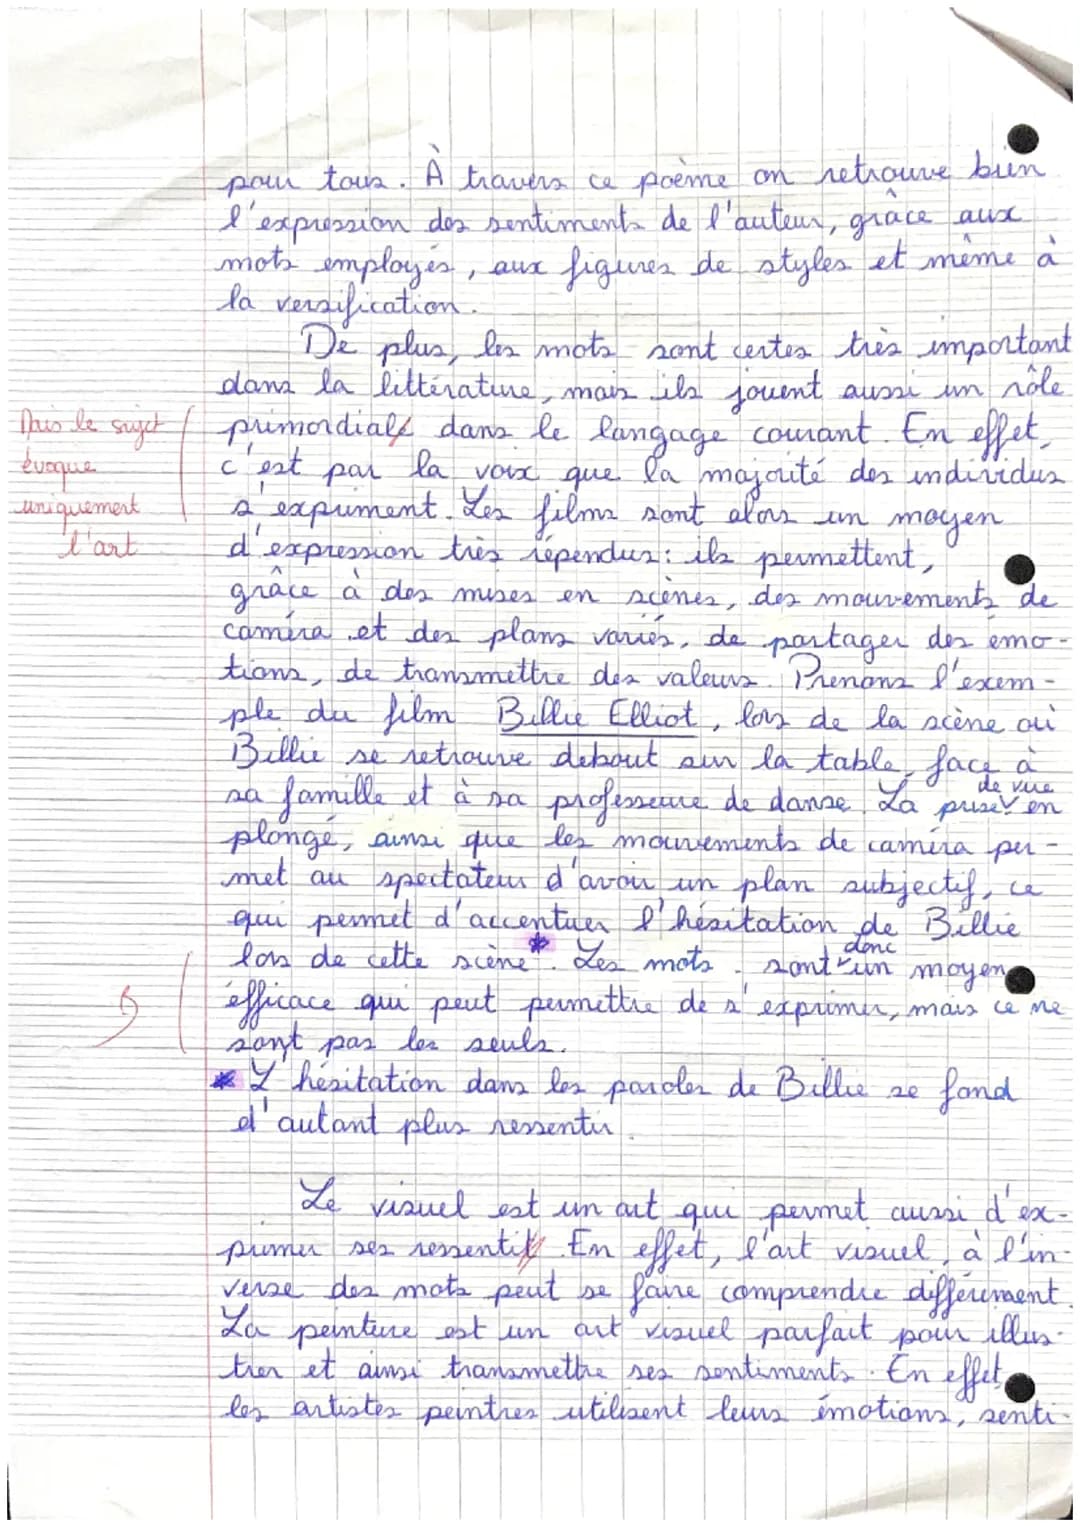 pour tous. À travers ce poème on retrouve bien
l'expression des sentiments de l'auteur, grâce aux
mots employés, aux figures de styles et même à
la versification.
De plus, les mots sont certes très important
dans la littérature, mais ils jouent aussi un rôle
primordiale dans le langage courant. En effet,
c'est par la voix que la majorité des individus
s'expriment. Les films sont alors un moyen
d'expression très répendus: ils permettent,
grâce à des mises en scènes, des mouvements de
caméra et des plans variés, de partager des émo-
tions, de transmettre des valeurs. Prenons l'exem-
ple du film Billie Elliot, lors de la scène où
Billie se retrouve debout sur la table, face à
sa famille et à sa professeure de danse. La prise de vue en
plongé, ainsi que les mouvements de caméra per-
met au spectateur d'avoir un plan subjectif, ce
qui permet d'accentuer l'hésitation de Billie
lors de cette scène*. Les mots sont donc un moyen
efficace qui peut permettre de s'exprimer, mais ce ne
sont pas les seuls.
* L'hésitation dans les paroles de Billie se fond
d'autant plus ressentir.
Mais le sujet
évoque
uniquement
l'art
Le visuel est un art qui permet aussi d'ex-
primer ses ressentit. En effet, l'art visuel, à l'in-
verse des mots peut se faire comprendre différement.
La peinture est un art visuel parfait pour illus-
trer et ainsi transmettre ses sentiments. En effet,
les artistes peintres utilisent leurs émotions, senti-